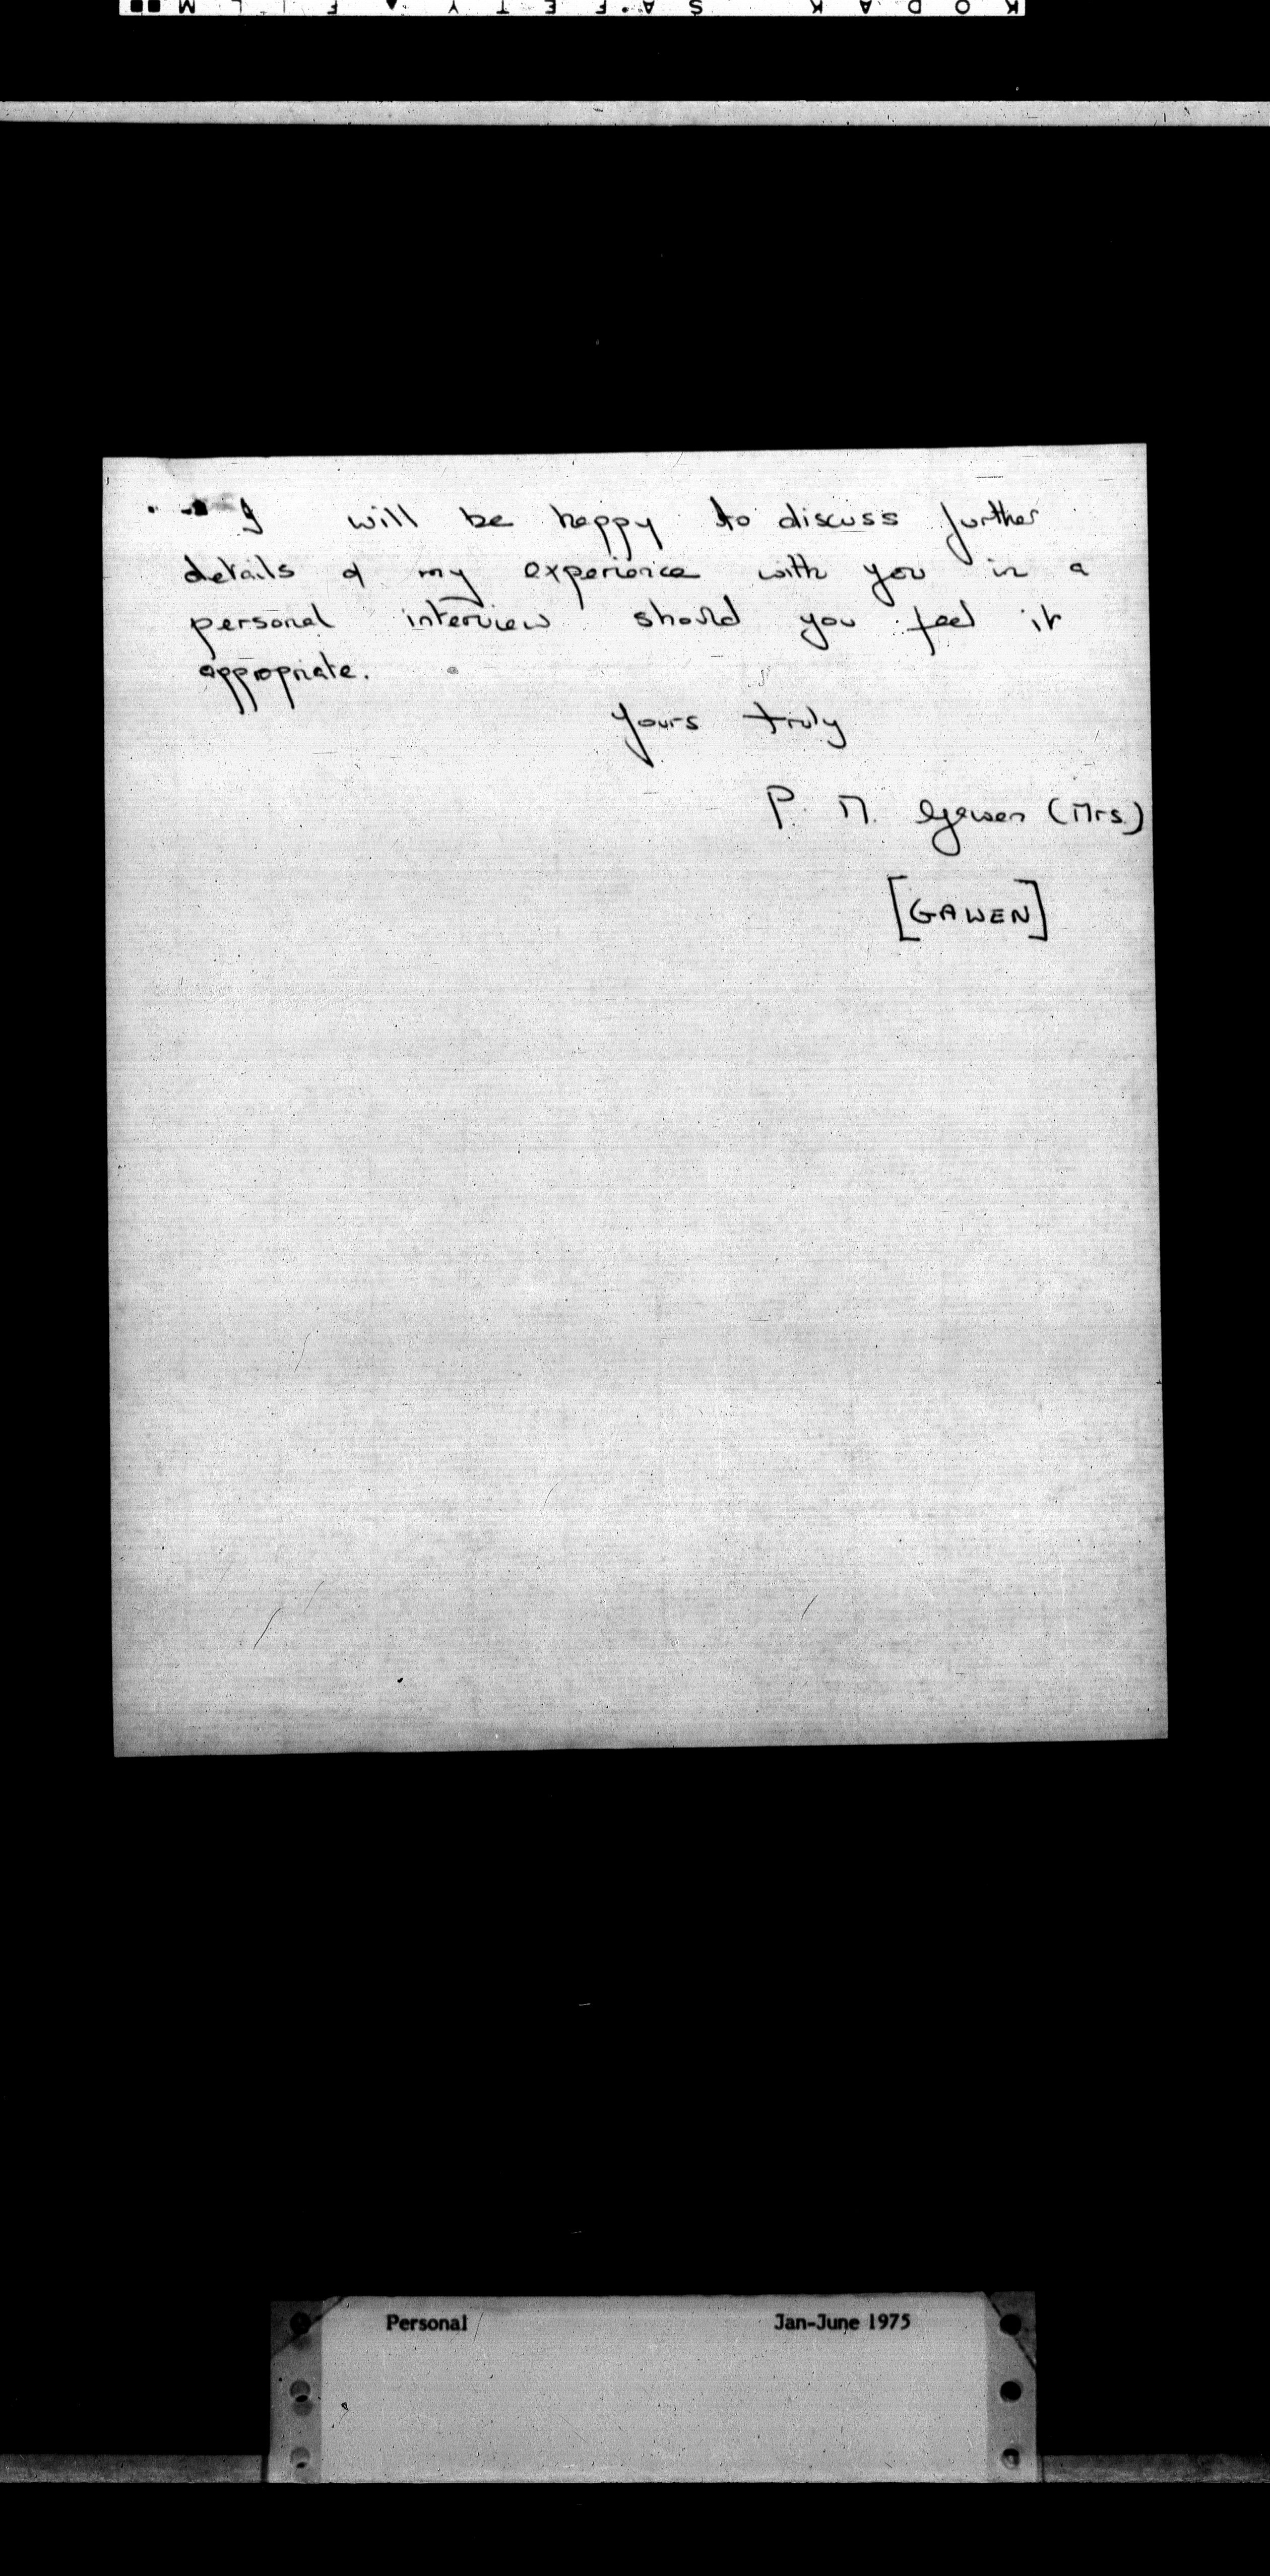 KODAK SAFETY FILM
I will be happy to discuss further
details of my experience with you in a
personal interview should you feel it
appropriate.
Yours truly
P. M. Gawen (Mrs.)
[GAWEN]
Personal Jan-June 1975